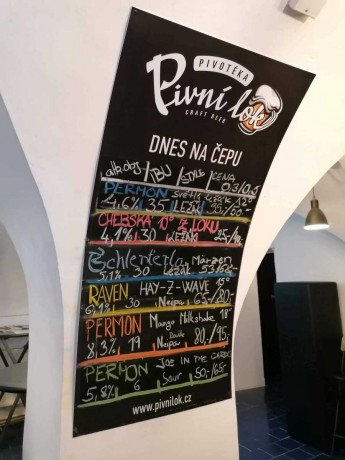 PIVOTÉKA
Pivní lok
CRAFT BEER
DNES NA ČEPU
alk.obj. / IBU / STYLE / CENA
0,3/0,5
PERMON Světlý ležák 12°
4,6% 35 LEŽÁK
CHEBSKÁ 10° Z LOKU
4,1% 30 LEŽÁK
Schlenkerla Märzen
5,1% 30 Ležák 53/68,-
RAVEN HAY-Z-WAVE 15°
6,1% 30 Neipa 65/80,-
PERMON Mango Milkshake 18°
8,3% 19 Neipa 80,/95,-
PERMON JOE IN THE GARDEN
5,8% 6 Sour 50/65,-
www.pivnilok.cz